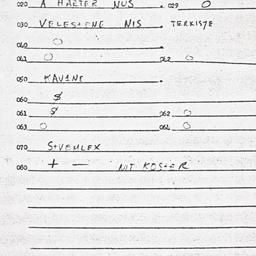 020 A HALTER NUS . 029 O
030 VELESTENE NIS . TERKISTE
040 O
041 O 042 O
050 KAVINE
060 $
061 $ 062 O
063 O 064 O
070 STVEMLEX
080 + — NIT KOSTER